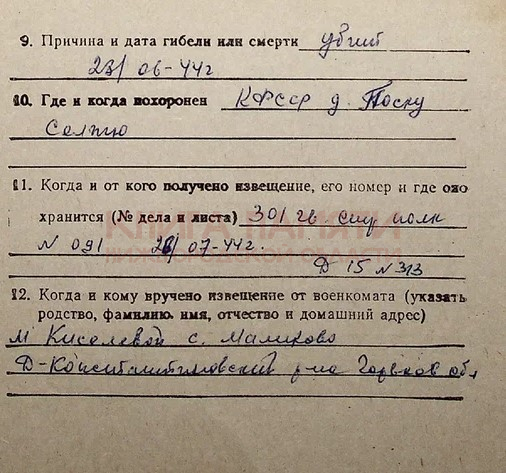 9. Причина и дата гибели или смерти убит
23/06-44г
10. Где и когда похоронен КФССР д. Паску
Селпю
11. Когда и от кого получено извещение, его номер и где оно
хранится (№ дела и листа) 301 гв. стр полк
N 091 26/07-44г.
Д 15 N 313
КНИГА ПАМЯТИ
НИЖЕГОРОДСКОЙ ОБЛАСТИ
12. Когда и кому вручено извещение от военкомата (указать
родство, фамилию, имя, отчество и домашний адрес)
М Киселевой с. Маликово
Д-Константиновский р-на Горьков обл